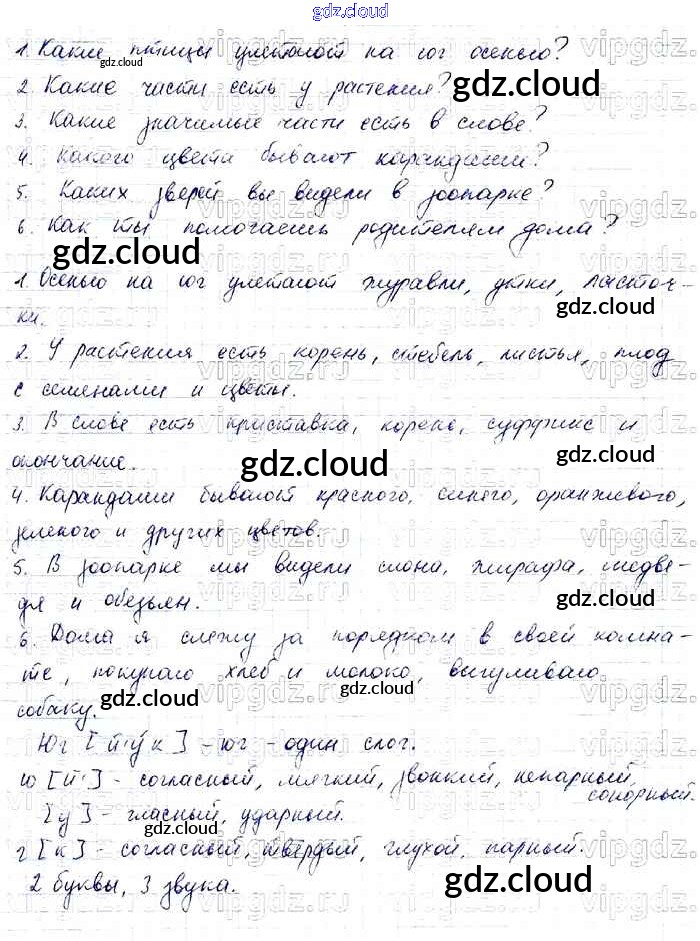 gdz.cloud
1. Какие птицы улетают на юг осенью?
2. Какие части есть у растения?
3. Какие значимые части есть в слове?
4. Какого цвета бывают карандаши?
5. Каких зверей вы видели в зоопарке?
6. Как ты помогаешь родителям дома?
1. Осенью на юг улетают журавли, утки, ласточ-
ки.
2. У растения есть корень, стебель, листья, плод
с семенами и цветы.
3. В слове есть приставка, корень, суффикс и
окончание.
4. Карандаши бывают красного, синего, оранжевого,
зеленого и других цветов.
5. В зоопарке мы видели слона, жирафа, медве-
дя и обезьян.
6. Дома я слежу за порядком в своей комна-
те, покупаю хлеб и молоко, выгуливаю
собаку.
Юг [й'у́к] - юг - один слог.
ю [й'] - согласный, мягкий, звонкий, непарный,
сонорный.
[у] - гласный, ударный.
г [к] - согласный, твердый, глухой, парный.
2 буквы, 3 звука.